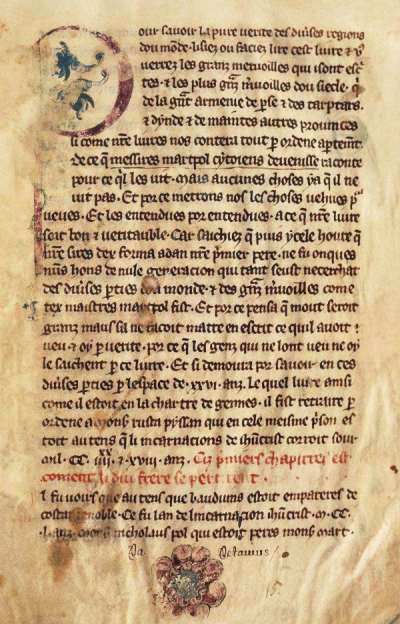 our sauoir la pure verite des diũses regions
dou mõde. lisiez ou faciez lire cest liure & y
uerrez les granz meruoilles qui i sont esc̃
tes. & les plus grãz m̃uoilles dou siecle. q̃
de la grãt armenie de p̃se & des tartars.
& dynde & de maintes autres prouinces
li come nr̃e liures nos contera tout p̃ ordene apertem̃t.
de ce q̃ messires marcpol cytoiens de uenisse raconte
pour ce q̃l les uit. Mais aucunes choses y a q̃ il ne
uit pas. Et por ce metrons nos les choses uehues p̃
ueues. Et les entendues por entendues. a ce q̃ nr̃e liure
soit bon & ueritauble. Car sauchiez q̃ puis ycele houre q̃
nr̃e sires dex forma adan nr̃e p̃mier pere. ne fu onques
nũs hons de nule generacion qui tant seust ne cerchat
des diũses p̃ties dou monde. & des grãz m̃uoilles come
cex maistres marcpol fist. Et por ce pensa q̃ mout seroit
granz maus sil ne facoit mattre en escrit ce quil auoit
ueu. & oy p̃ uerite. por ce q̃ les genz qui ne lont ueu ne oy
le sauchent p̃ ce liure. Et si demoura por sauoir en ces
diũses p̃ties p̃ lespace de .xxvi. anz. Le quel liure ansi
come il estoit en la chartre de gennes. il fist retraire p̃
ordene a mons̃ rusta pysam qui en cele meisme p̃son es
toit au tens q̃ li incarnacions de ih̃ucrist corroit sour
mil. CC. iiij xx. & xviii. anz. Ci p̃miers chapitres est
coment li dui frere se partirent.
l fu uoirs que au tens que baudoins estoit empareres de
costantinoble. Ce fu lan de lincarnacion ih̃ucrist. M. CC.
L. anz. nicholaus pol qui estoit peres mons̃ marc.
Petauius